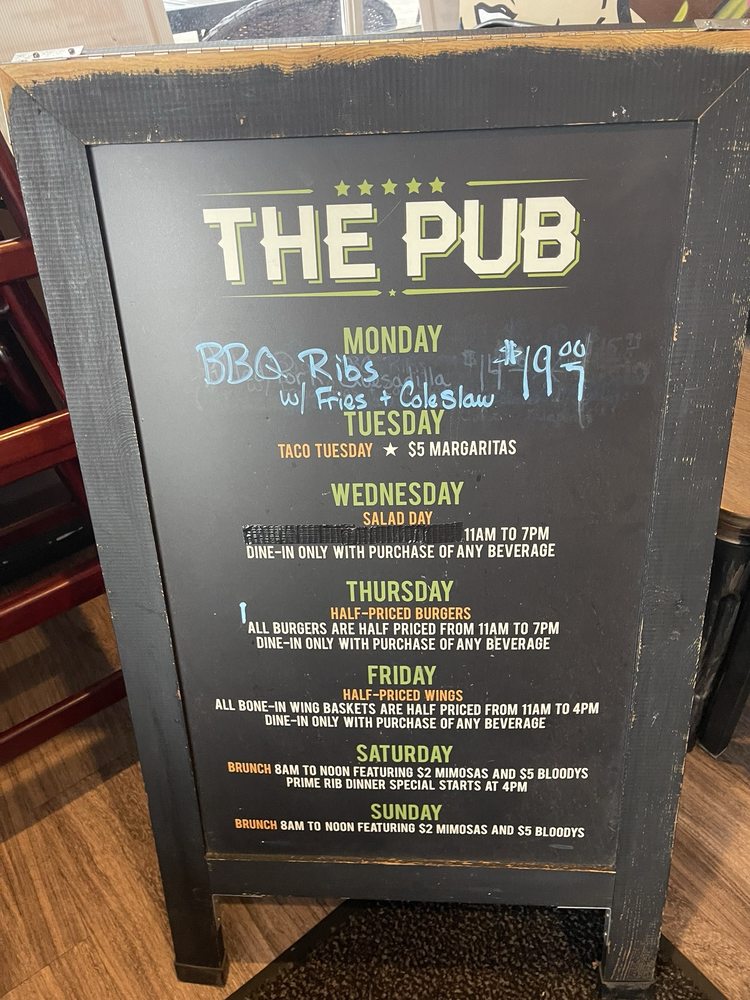 THE PUB
MONDAY
BBQ Ribs $19.00
w/ Fries + Coleslaw
TUESDAY
TACO TUESDAY ★ $5 MARGARITAS
WEDNESDAY
SALAD DAY
11AM TO 7PM
DINE-IN ONLY WITH PURCHASE OF ANY BEVERAGE
THURSDAY
HALF-PRICED BURGERS
ALL BURGERS ARE HALF PRICED FROM 11AM TO 7PM
DINE-IN ONLY WITH PURCHASE OF ANY BEVERAGE
FRIDAY
HALF-PRICED WINGS
ALL BONE-IN WING BASKETS ARE HALF PRICED FROM 11AM TO 4PM
DINE-IN ONLY WITH PURCHASE OF ANY BEVERAGE
SATURDAY
BRUNCH 8AM TO NOON FEATURING $2 MIMOSAS AND $5 BLOODYS
PRIME RIB DINNER SPECIAL STARTS AT 4PM
SUNDAY
BRUNCH 8AM TO NOON FEATURING $2 MIMOSAS AND $5 BLOODYS